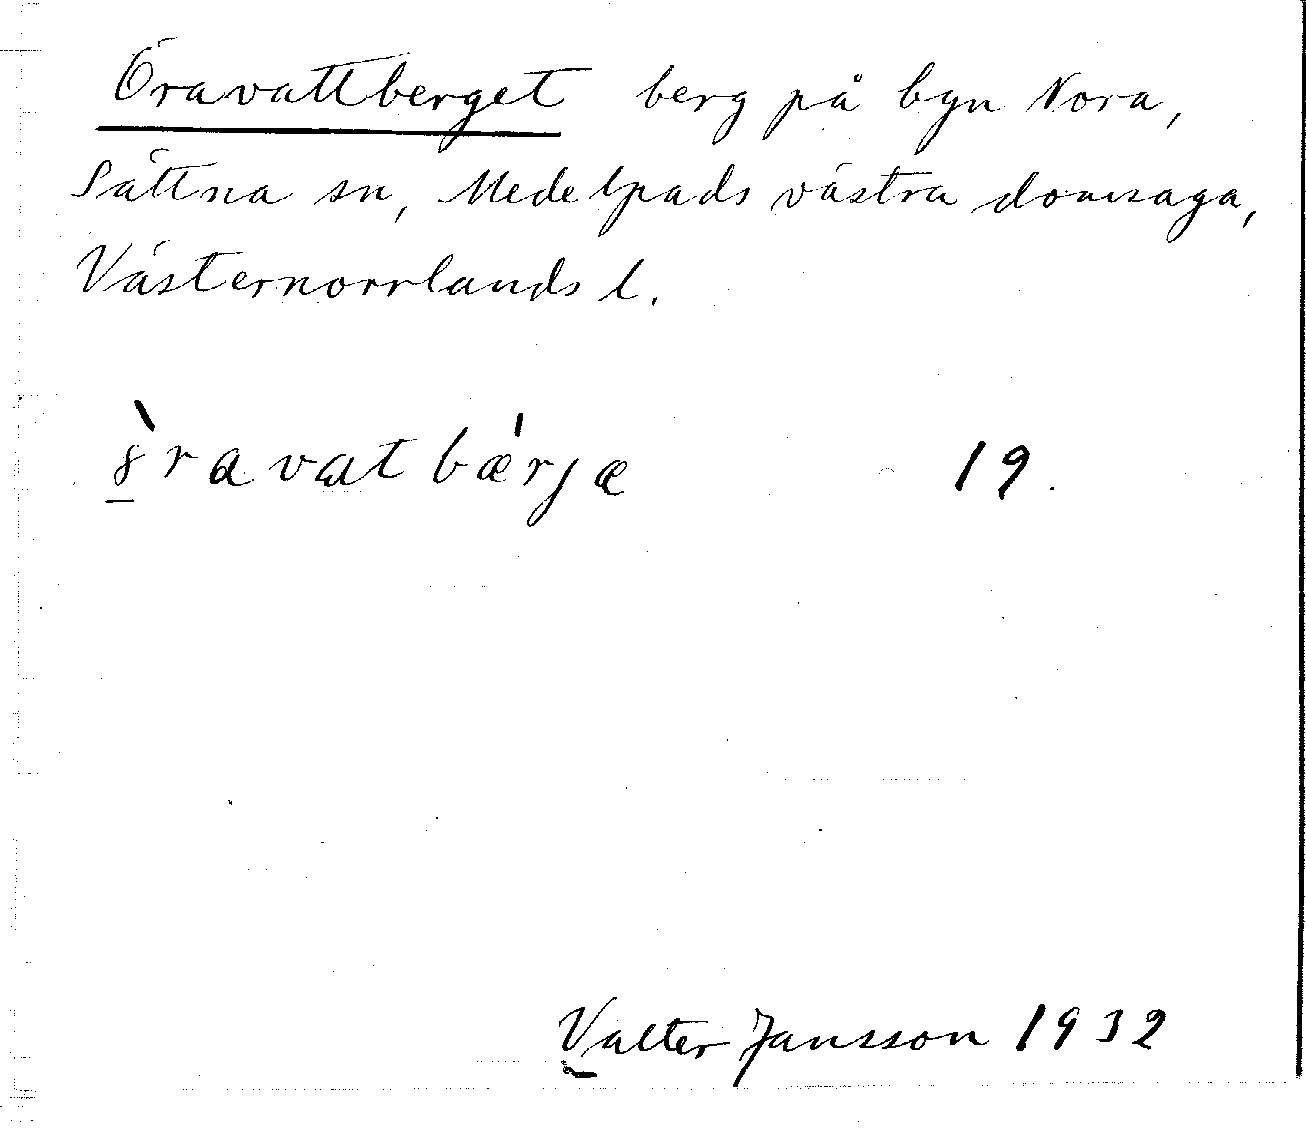 Öravattberget berg på byn Nora,
Sättna sn, Medelpads västra domsaga,
Västernorrlands l.
19.
Valter Jansson 1932